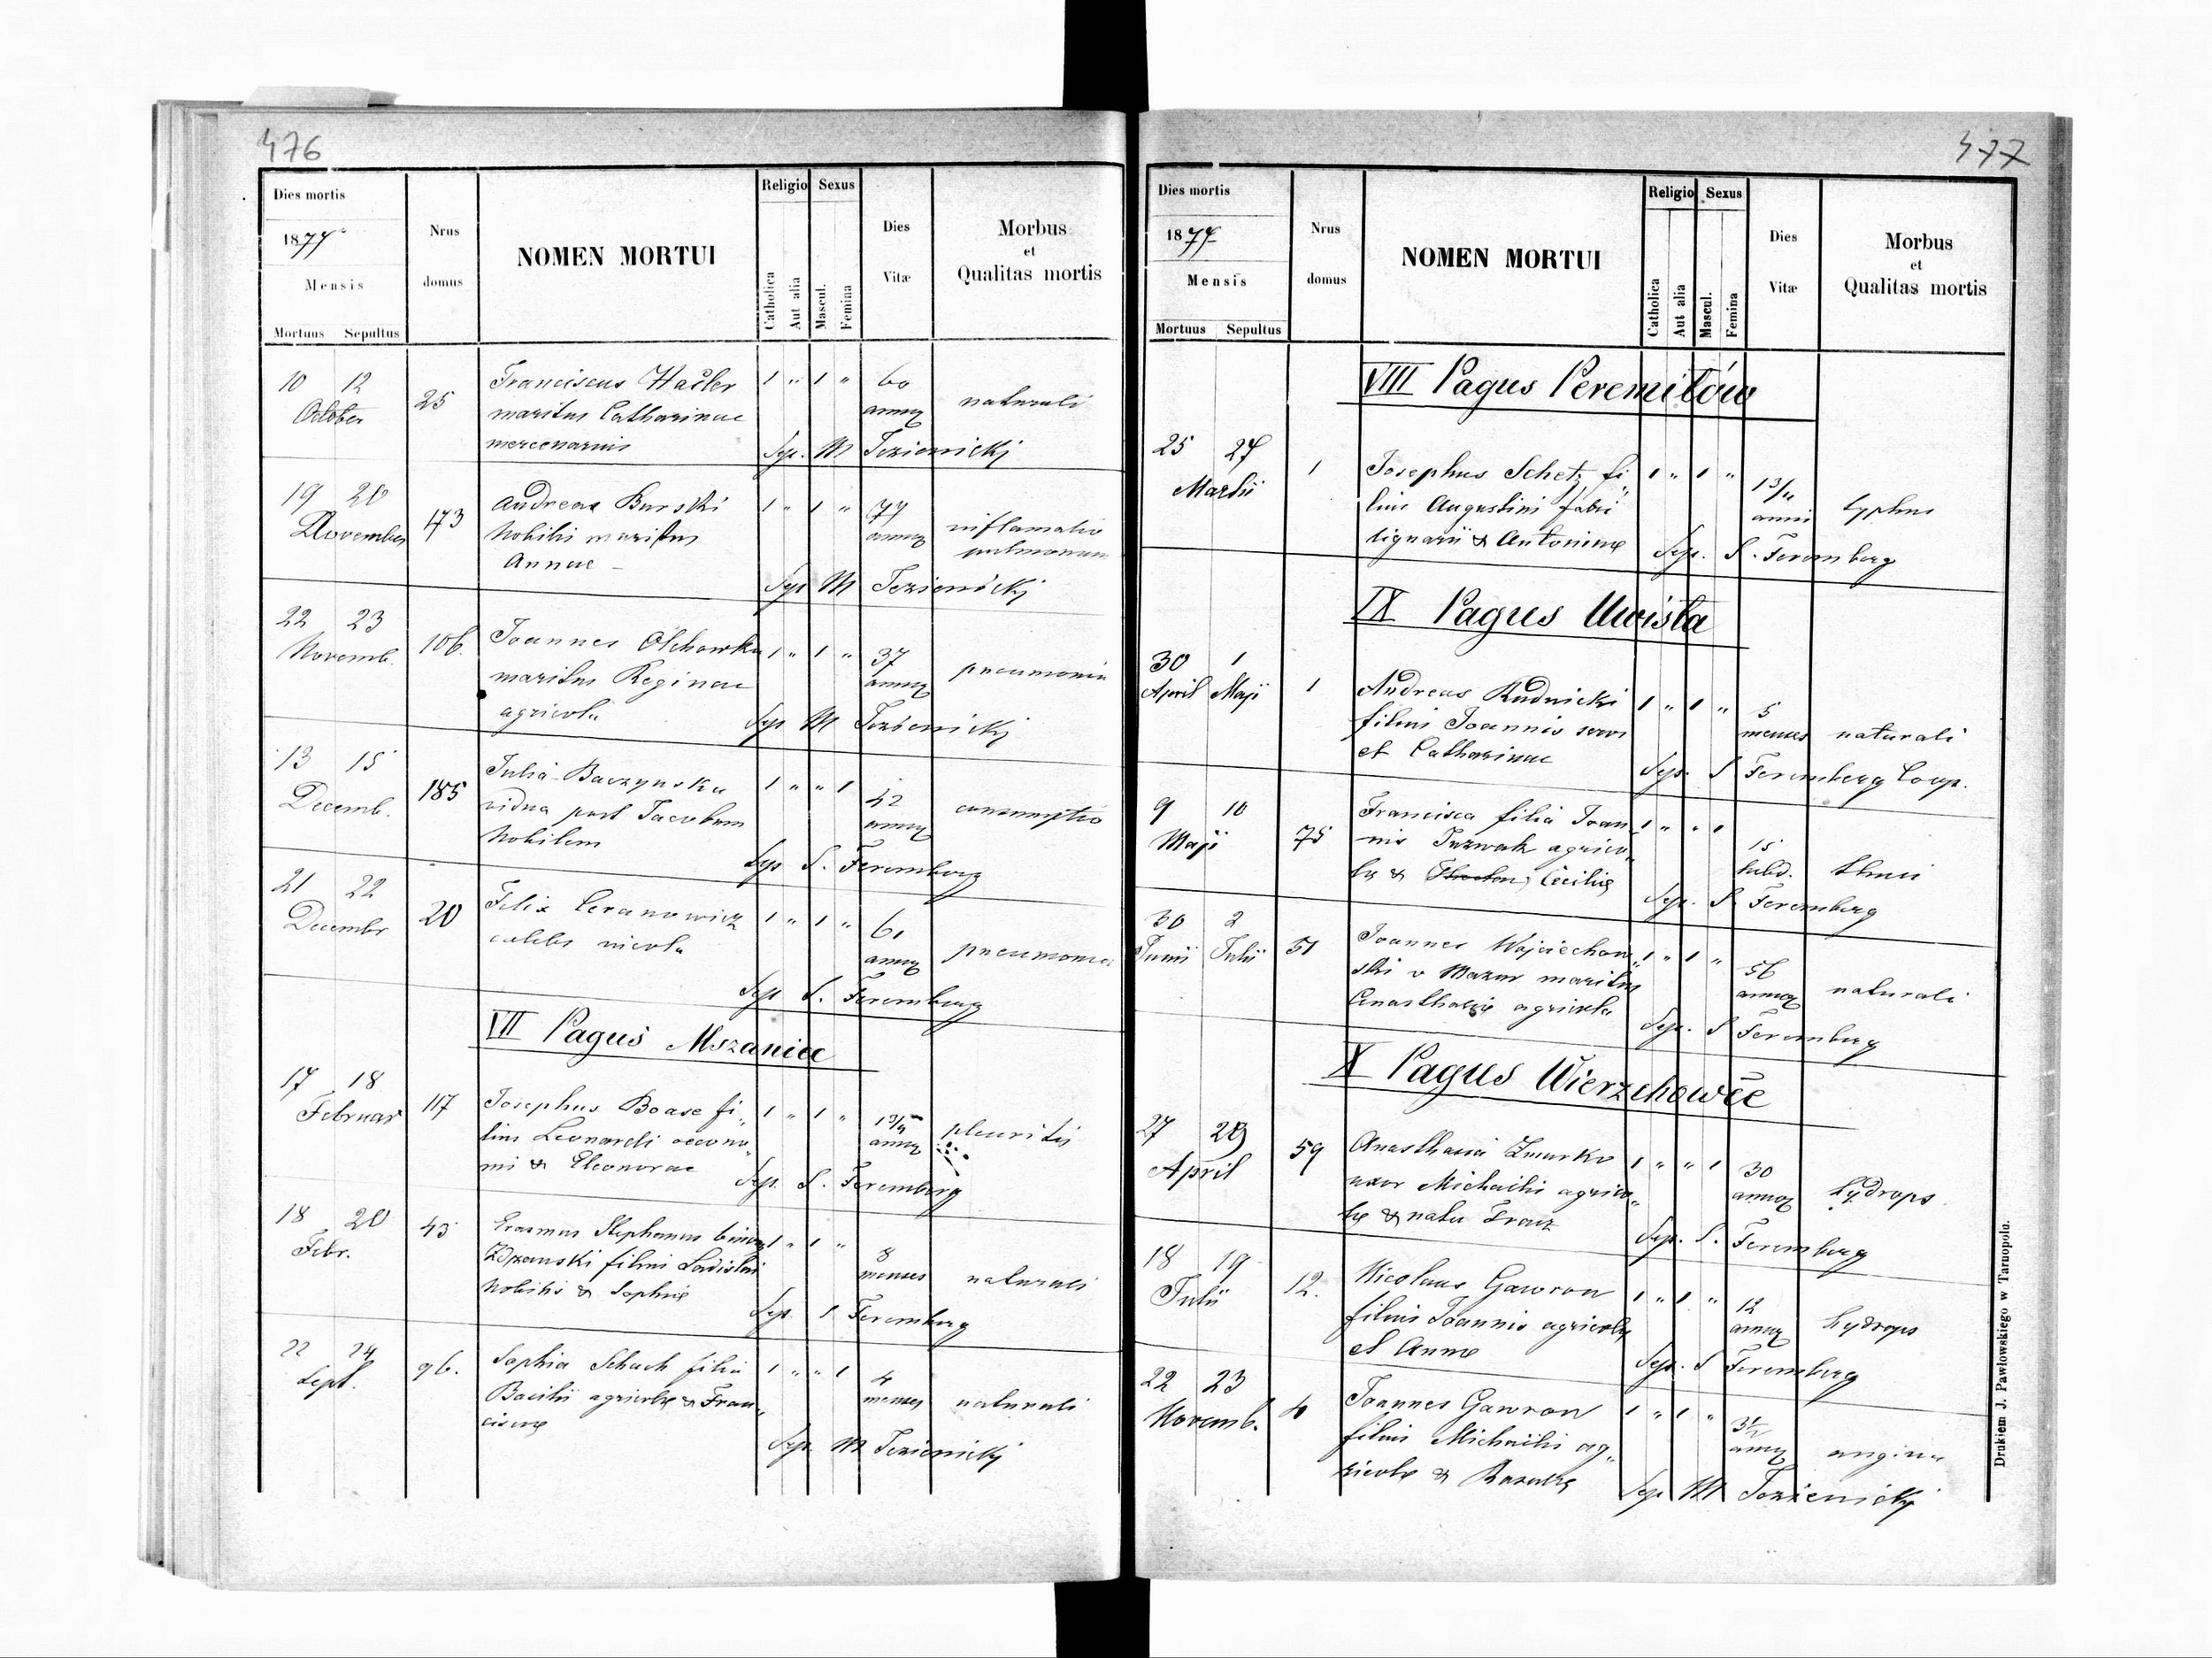 476
Dies mortis
1877
Mensis
Mortuus Sepultus
Nrus
domus
NOMEN MORTUI
Religio
Catholica
Aut alia
Sexus
Mascul.
Femina
Dies
Vitæ
Morbus
et
Qualitas mortis
10 12
October
25
Franciscus
maritus Catharinae
mercenarius
1 " 1 "
60
annor
naturali
Sep. M Jezienickj
19 20
November
173
Andreas Burski
Nobilis maritus
Annae
1 " 1 "
77
annor
inflamatio
pulmonum
Sep M Jezienickj
22 23
Novemb.
106.
Joannes Olchowka
maritus Reginae
agricola
1 " 1 "
37
annor
pneumonia
Sep M Jezienickj
13 15
Decemb.
185
Julia Baczynska
vidua post Jacobum
Nobilem
1 " " 1
42
annor
consumptio
Sep S. Feremberg
21 22
Decembr
20
Felix Ceranowicz
caelebs
1 " 1 "
61
annor
pneumonia
Sep S. Feremberg
VII Pagus Mszaniec
17 18
Februar
117
Josephus Boase fi„
lius Leonardi oecono„
mi & Eleonorae
1 " 1 "
1 3/4
annor
pleuritis
Sep. S. Feremberg
18 20
Febr.
43
Erasmus Stephanus
filius Ladislai
Nobilis & Sophiæ
1 " 1 "
8
menses
naturali
Sep. S Feremberg
22 24
Sept.
96.
Sophia Schach filia
Basilii agricolæ & Fran„
ciscæ
1 " " 1
4
menses
naturali
Sep. M Jezienickj
477
Dies mortis
1877
Mensis
Mortuus Sepultus
Nrus
domus
NOMEN MORTUI
Religio
Catholica
Aut alia
Sexus
Mascul.
Femina
Dies
Vitæ
Morbus
et
Qualitas mortis
VIII Pagus Peremiłów
25 27
Martii
1
Josephus Schetz fi„
lius Augustini fabri
lignarii & Antoninæ
1 " 1 "
1 3/4
anni
typhus
Sep. S. Feremberg
IX Pagus Uwisła
30 1
April Maji
1
Andreas Rudnicki
filius Joannis servi
et Catharinae
1 " 1 "
5
menses
naturali
Sep. S Feremberg Coop.
9 10
Maji
75
Francisca filia Joan„
nis agrico„
læ & Ceciliæ
1 " " 1
15
hebd.
Sep. S Feremberg
30 2
Junii Julii
51
Joannes Wojciechow„
ski v Mazur maritus
Anasthasiæ agricola
1 " 1 "
56
annor
naturali
Sep. S Feremberg
X Pagus Wierzchowce
27 29
April
59
Anasthasia Zmurko
uxor Michaelis agrico„
læ & nata Franz
1 " " 1
30
annor
hydrops
Sep. S. Feremberg
18 19
Julii
12.
Nicolaus Gawron
filius Joannis agricolæ
et Annæ
1 " 1 "
12
annor
hydrops
Sep. S Feremberg
22 23
Novemb.
Joannes Gawron
filius Michaelis ag„
ricolæ &
1 " 1 "
3 1/2
annor
angina
Sep M Jezienickj
Drukiem J. Pawłowskiego w Tarnopolu.